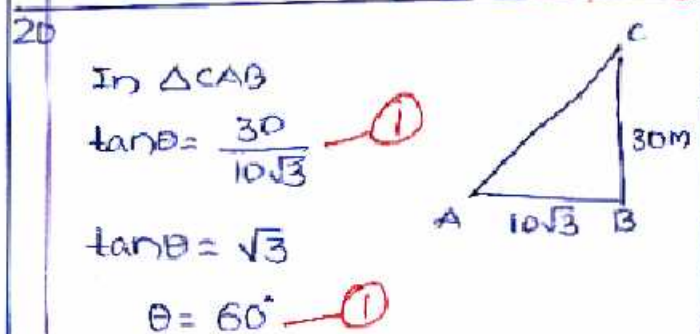 20
In △CAB
tanθ = 30 / 10√3 — ①
tanθ = √3
θ = 60° — ①
C
30M
A 10√3 B